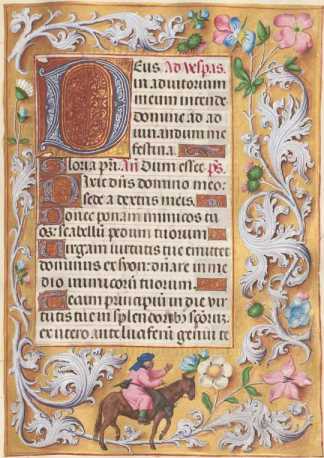 Deus Ad vespas.
in adiutorium
meum intende
domine ad ad
iuuandum me
festina.
Gloria pri. An Dum esset ps.
Dixit dns domino meo:
sede a dextris meis.
Donec ponam inimicos tu
os: scabellum pedum tuorum
Uirgam uirtutis tue emittet
dominus ex syon: dnare in me
dio inimicorum tuorum.
Tecum principiu in die uir
tutis tue in splendoribus scorum:
ex utero ante luciferu genui te